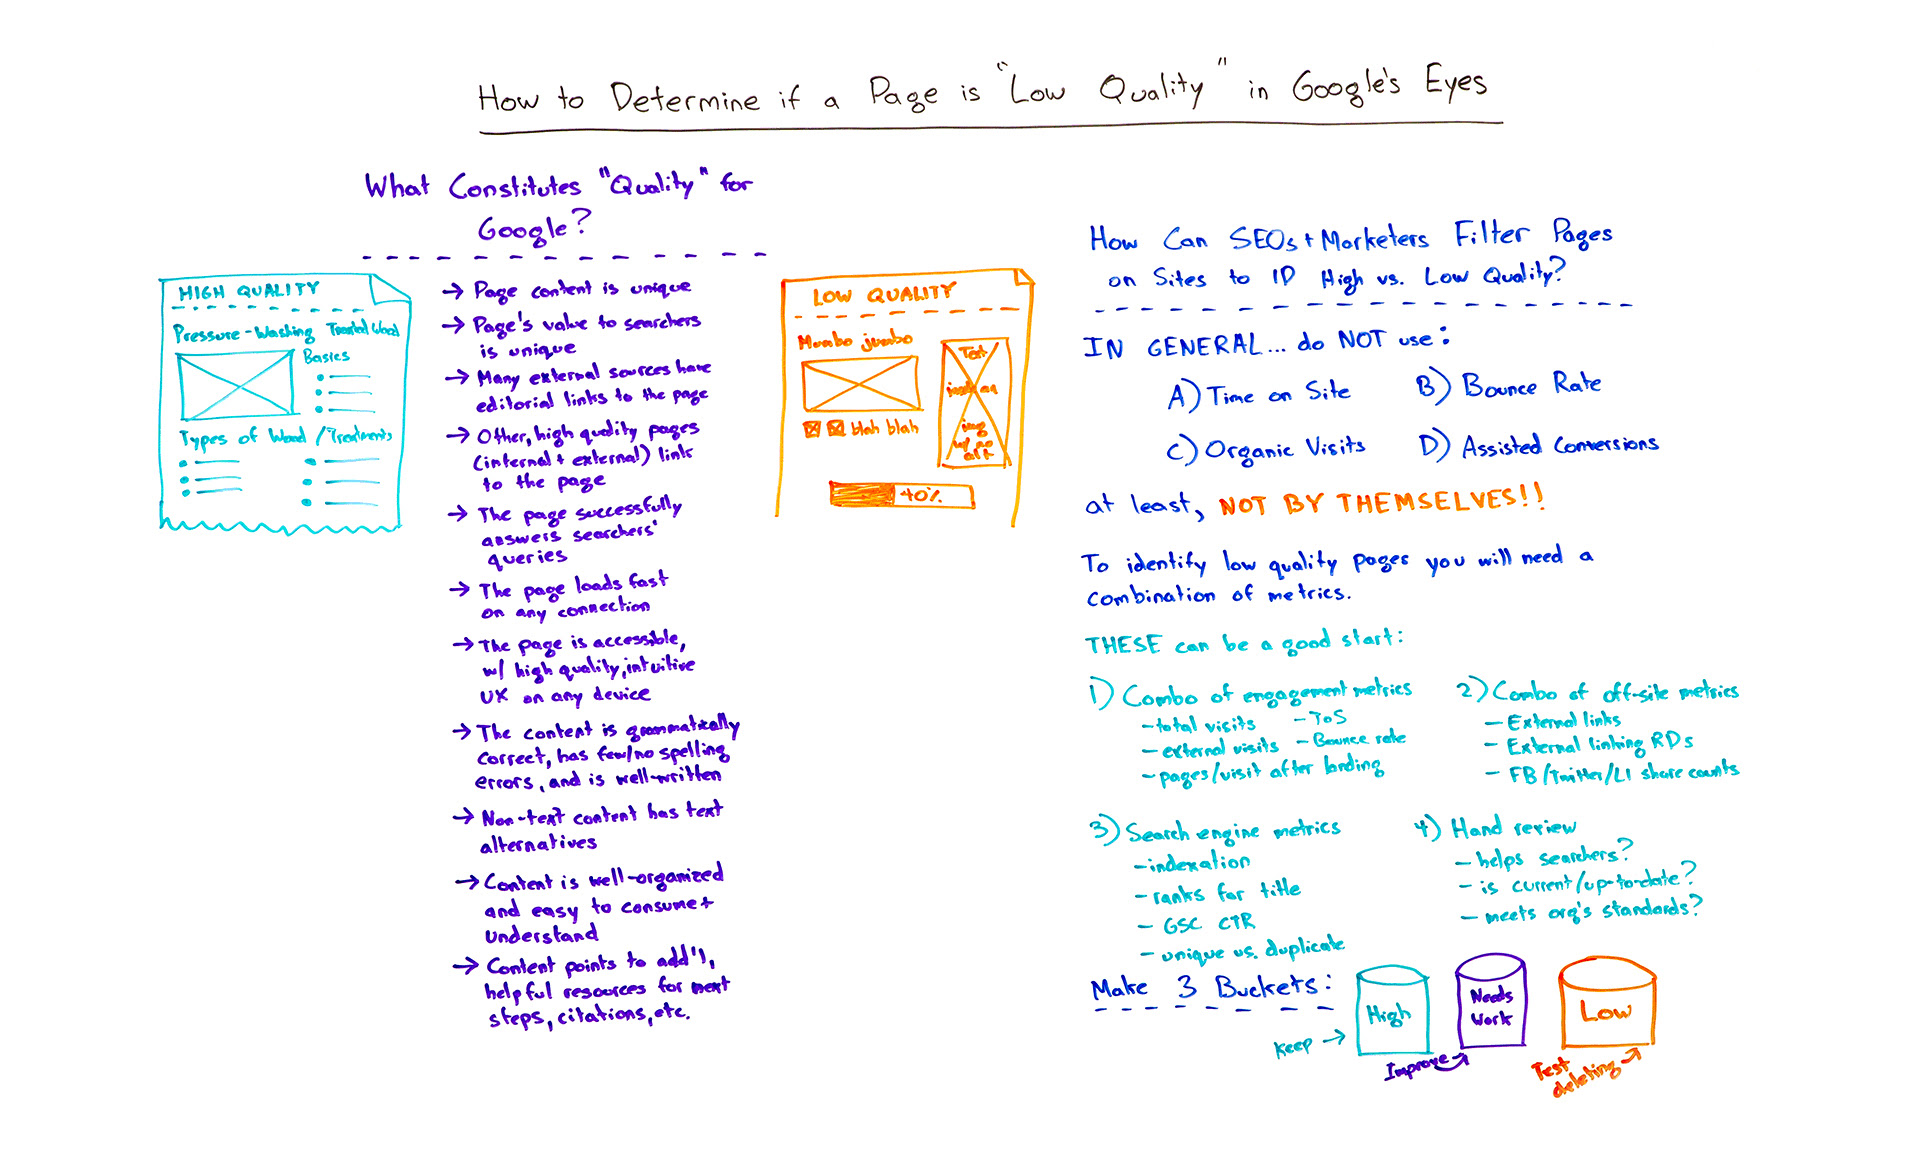 How to Determine if a Page is "Low Quality" in Google's Eyes
What Constitutes "Quality" for
Google?
HIGH QUALITY
Pressure-Washing Treated Wood
Basics
Types of Wood/Treatments
→ Page content is unique
→ Page's value to searchers
is unique
→ Many external sources have
editorial links to the page
→ Other, high quality pages
(internal + external) link
to the page
→ The page successfully
answers searchers'
queries
→ The page loads fast
on any connection
→ The page is accessible,
w/ high quality, intuitive
UX on any device
→ The content is grammatically
correct, has few/no spelling
errors, and is well-written
→ Non-text content has text
alternatives
→ Content is well-organized
and easy to consume +
understand
→ Content points to add'l,
helpful resources for next
steps, citations, etc.
LOW QUALITY
Mumbo jumbo
blah blah
Text
img
w/ no
alt
40%
How Can SEOs + Marketers Filter Pages
on Sites to ID High vs. Low Quality?
IN GENERAL... do NOT use:
A) Time on Site
B) Bounce Rate
C) Organic Visits
D) Assisted Conversions
at least, NOT BY THEMSELVES!!
To identify low quality pages you will need a
combination of metrics.
THESE can be a good start:
1) Combo of engagement metrics
- total visits
- ToS
- external visits
- Bounce rate
- pages/visit after landing
2) Combo of off-site metrics
- External links
- External linking RDs
- FB/Twitter/LI share counts
3) Search engine metrics
- indexation
- ranks for title
- GSC CTR
- unique vs. duplicate
4) Hand review
- helps searchers?
- is current/up-to-date?
- meets org's standards?
Make 3 Buckets:
High
Needs
Work
Low
Keep →
Improve
Test
deleting